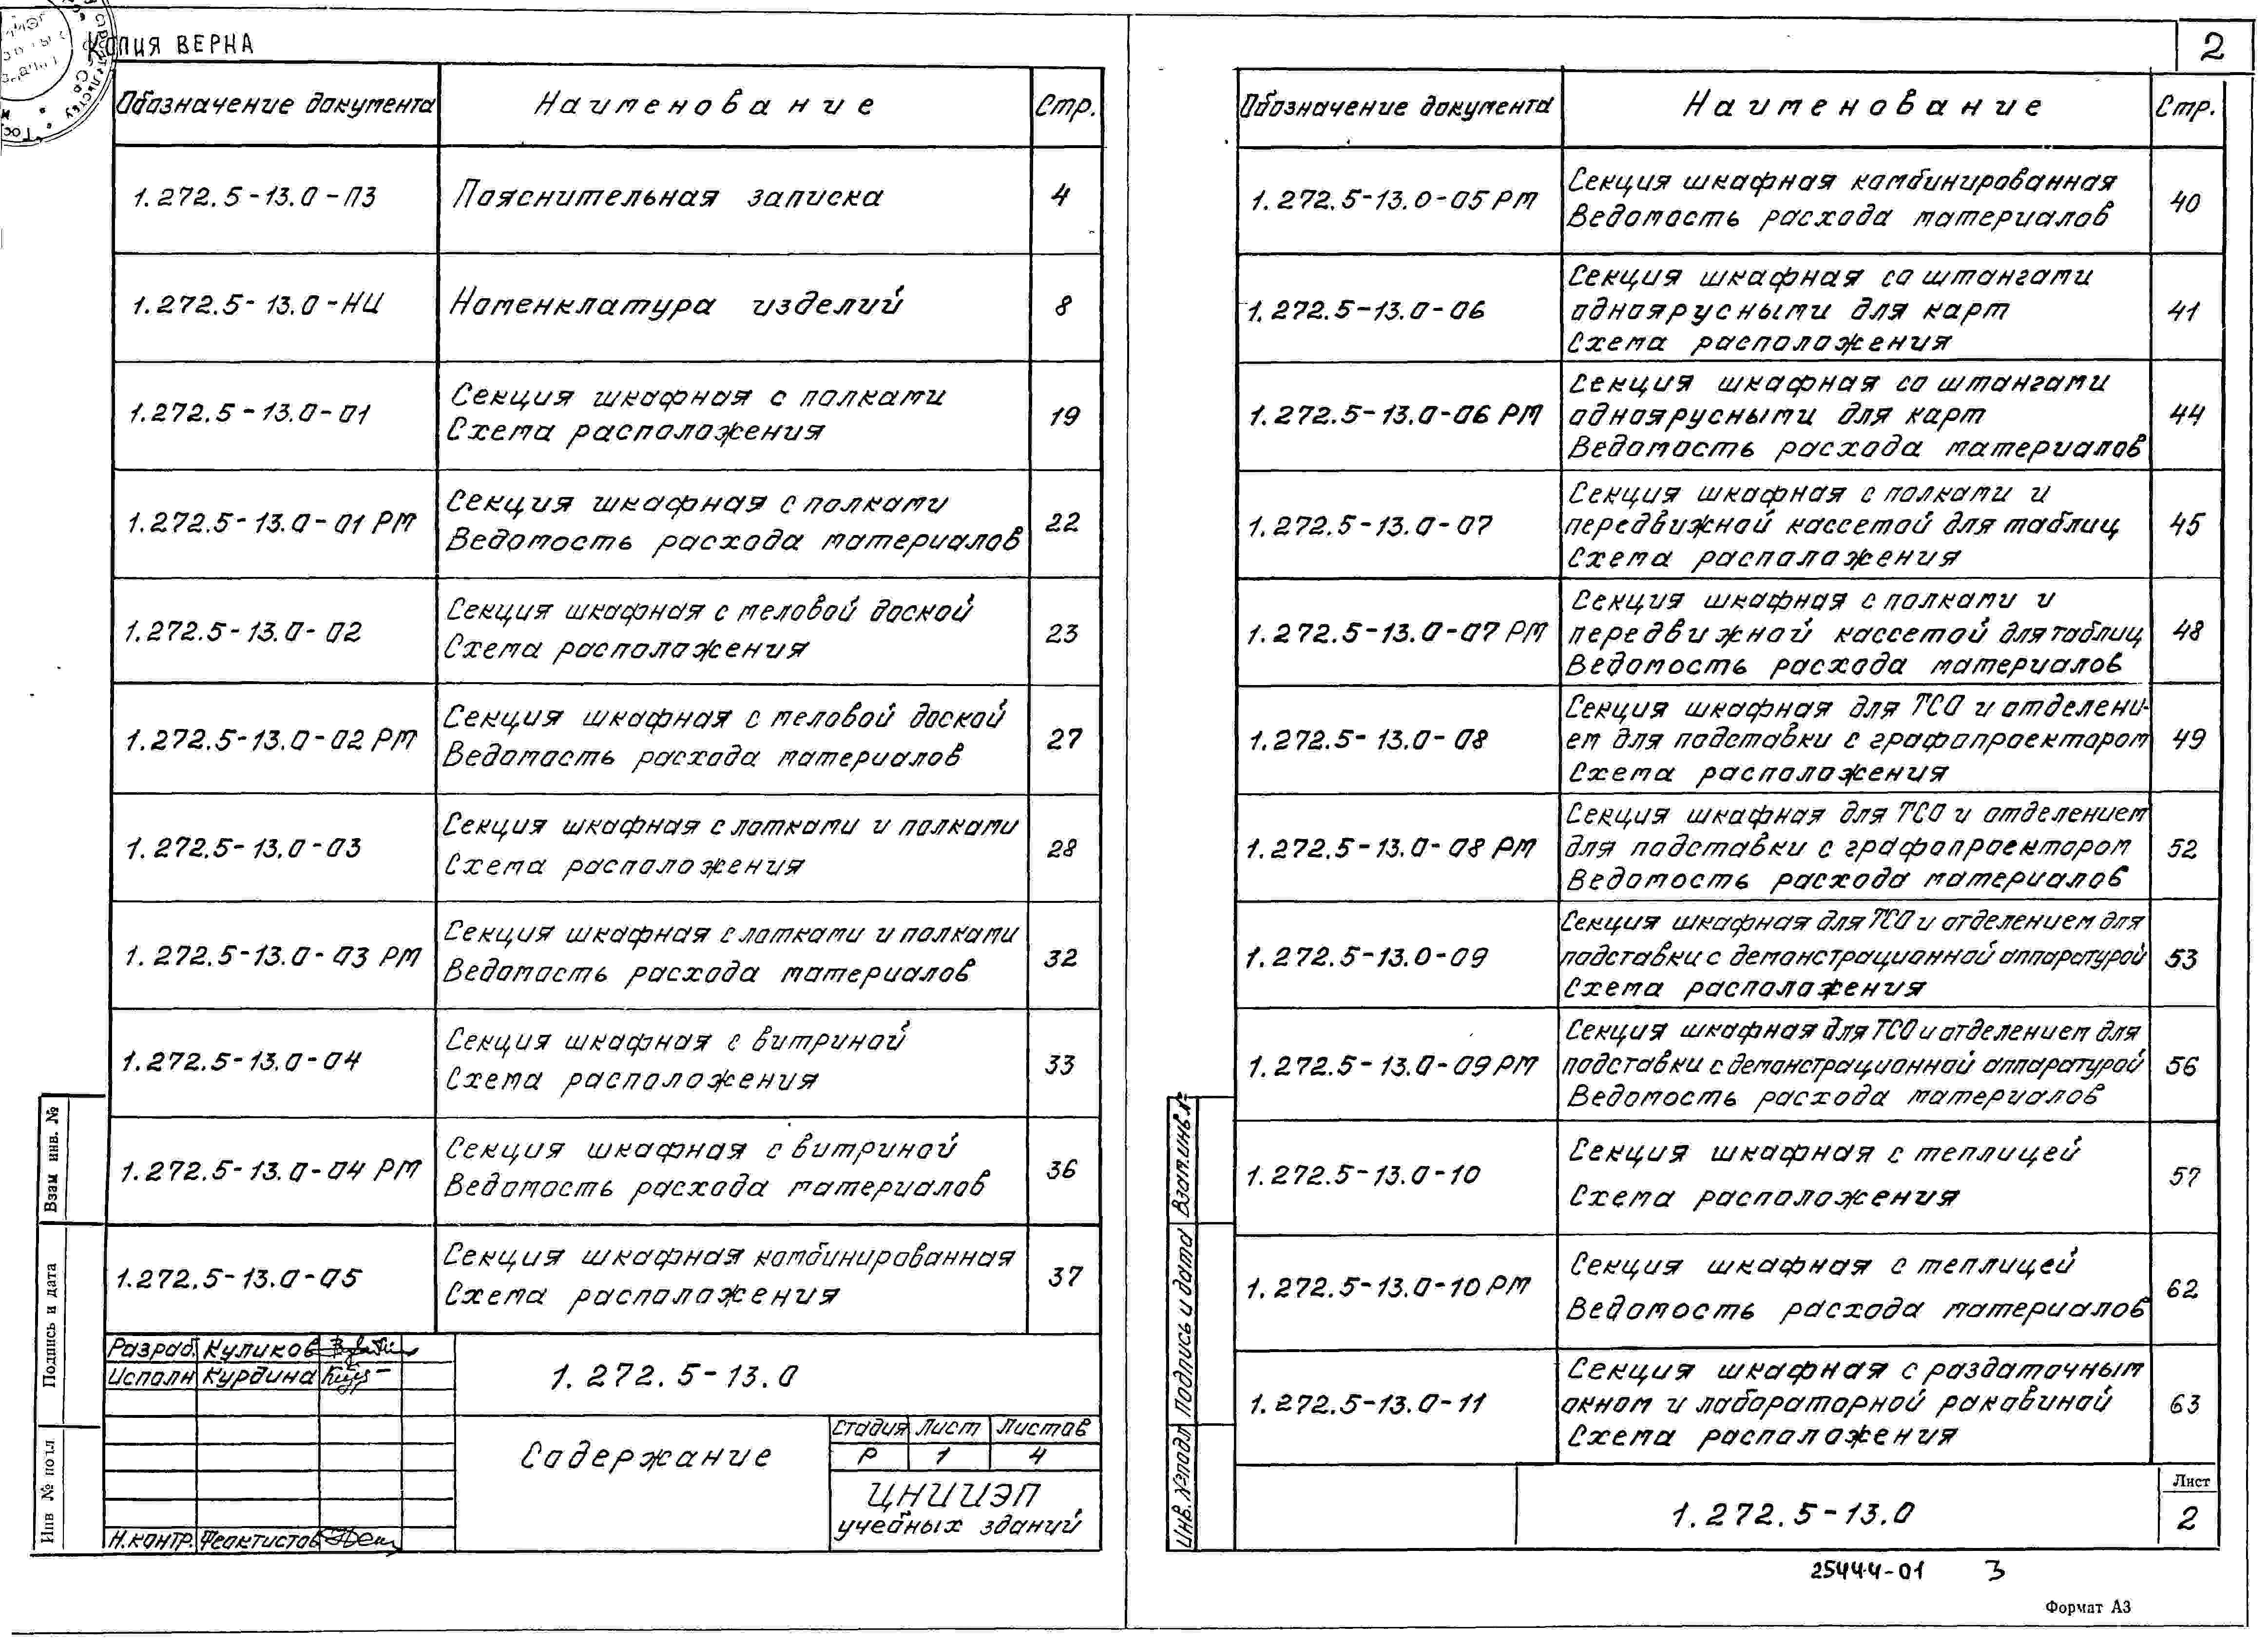 КОПИЯ ВЕРНА
Обозначение документа Наименование Стр.
1.272.5-13.0-ПЗ Пояснительная записка 4
1.272.5-13.0-НИ Номенклатура изделий 8
1.272.5-13.0-01 Секция шкафная с полками
Схема расположения 19
1.272.5-13.0-01 РМ Секция шкафная с полками
Ведомость расхода материалов 22
1.272.5-13.0-02 Секция шкафная с меловой доской
Схема расположения 23
1.272.5-13.0-02 РМ Секция шкафная с меловой доской
Ведомость расхода материалов 27
1.272.5-13.0-03 Секция шкафная с лотками и полками
Схема расположения 28
1.272.5-13.0-03 РМ Секция шкафная с лотками и полками
Ведомость расхода материалов 32
1.272.5-13.0-04 Секция шкафная с витриной
Схема расположения 33
1.272.5-13.0-04 РМ Секция шкафная с витриной
Ведомость расхода материалов 36
1.272.5-13.0-05 Секция шкафная комбинированная
Схема расположения 37
Разраб. Куликов
Исполн Курдина
Н.контр. Феоктистов
1.272.5-13.0
Содержание
Стадия Лист Листов
Р 1 4
ЦНИИЭП
учебных зданий
Взам инв. №
Подпись и дата
Инв № подл
2
Обозначение документа Наименование Стр.
1.272.5-13.0-05 РМ Секция шкафная комбинированная
Ведомость расхода материалов 40
1.272.5-13.0-06 Секция шкафная со штангами
одноярусными для карт
Схема расположения 41
1.272.5-13.0-06 РМ Секция шкафная со штангами
одноярусными для карт
Ведомость расхода материалов 44
1.272.5-13.0-07 Секция шкафная с полками и
передвижной кассетой для таблиц
Схема расположения 45
1.272.5-13.0-07 РМ Секция шкафная с полками и
передвижной кассетой для таблиц
Ведомость расхода материалов 48
1.272.5-13.0-08 Секция шкафная для ТСО и отделени-
ем для подставки с графопроектором
Схема расположения 49
1.272.5-13.0-08 РМ Секция шкафная для ТСО и отделением
для подставки с графопроектором
Ведомость расхода материалов 52
1.272.5-13.0-09 Секция шкафная для ТСО и отделением для
подставки с демонстрационной аппаратурой
Схема расположения 53
1.272.5-13.0-09 РМ Секция шкафная для ТСО и отделением для
подставки с демонстрационной аппаратурой
Ведомость расхода материалов 56
1.272.5-13.0-10 Секция шкафная с теплицей
Схема расположения 57
1.272.5-13.0-10 РМ Секция шкафная с теплицей
Ведомость расхода материалов 62
1.272.5-13.0-11 Секция шкафная с раздаточным
окном и лабораторной раковиной
Схема расположения 63
Взам.инв.№
Подпись и дата
Инв.№подл
1.272.5-13.0
Лист
2
25444-01 3
Формат А3